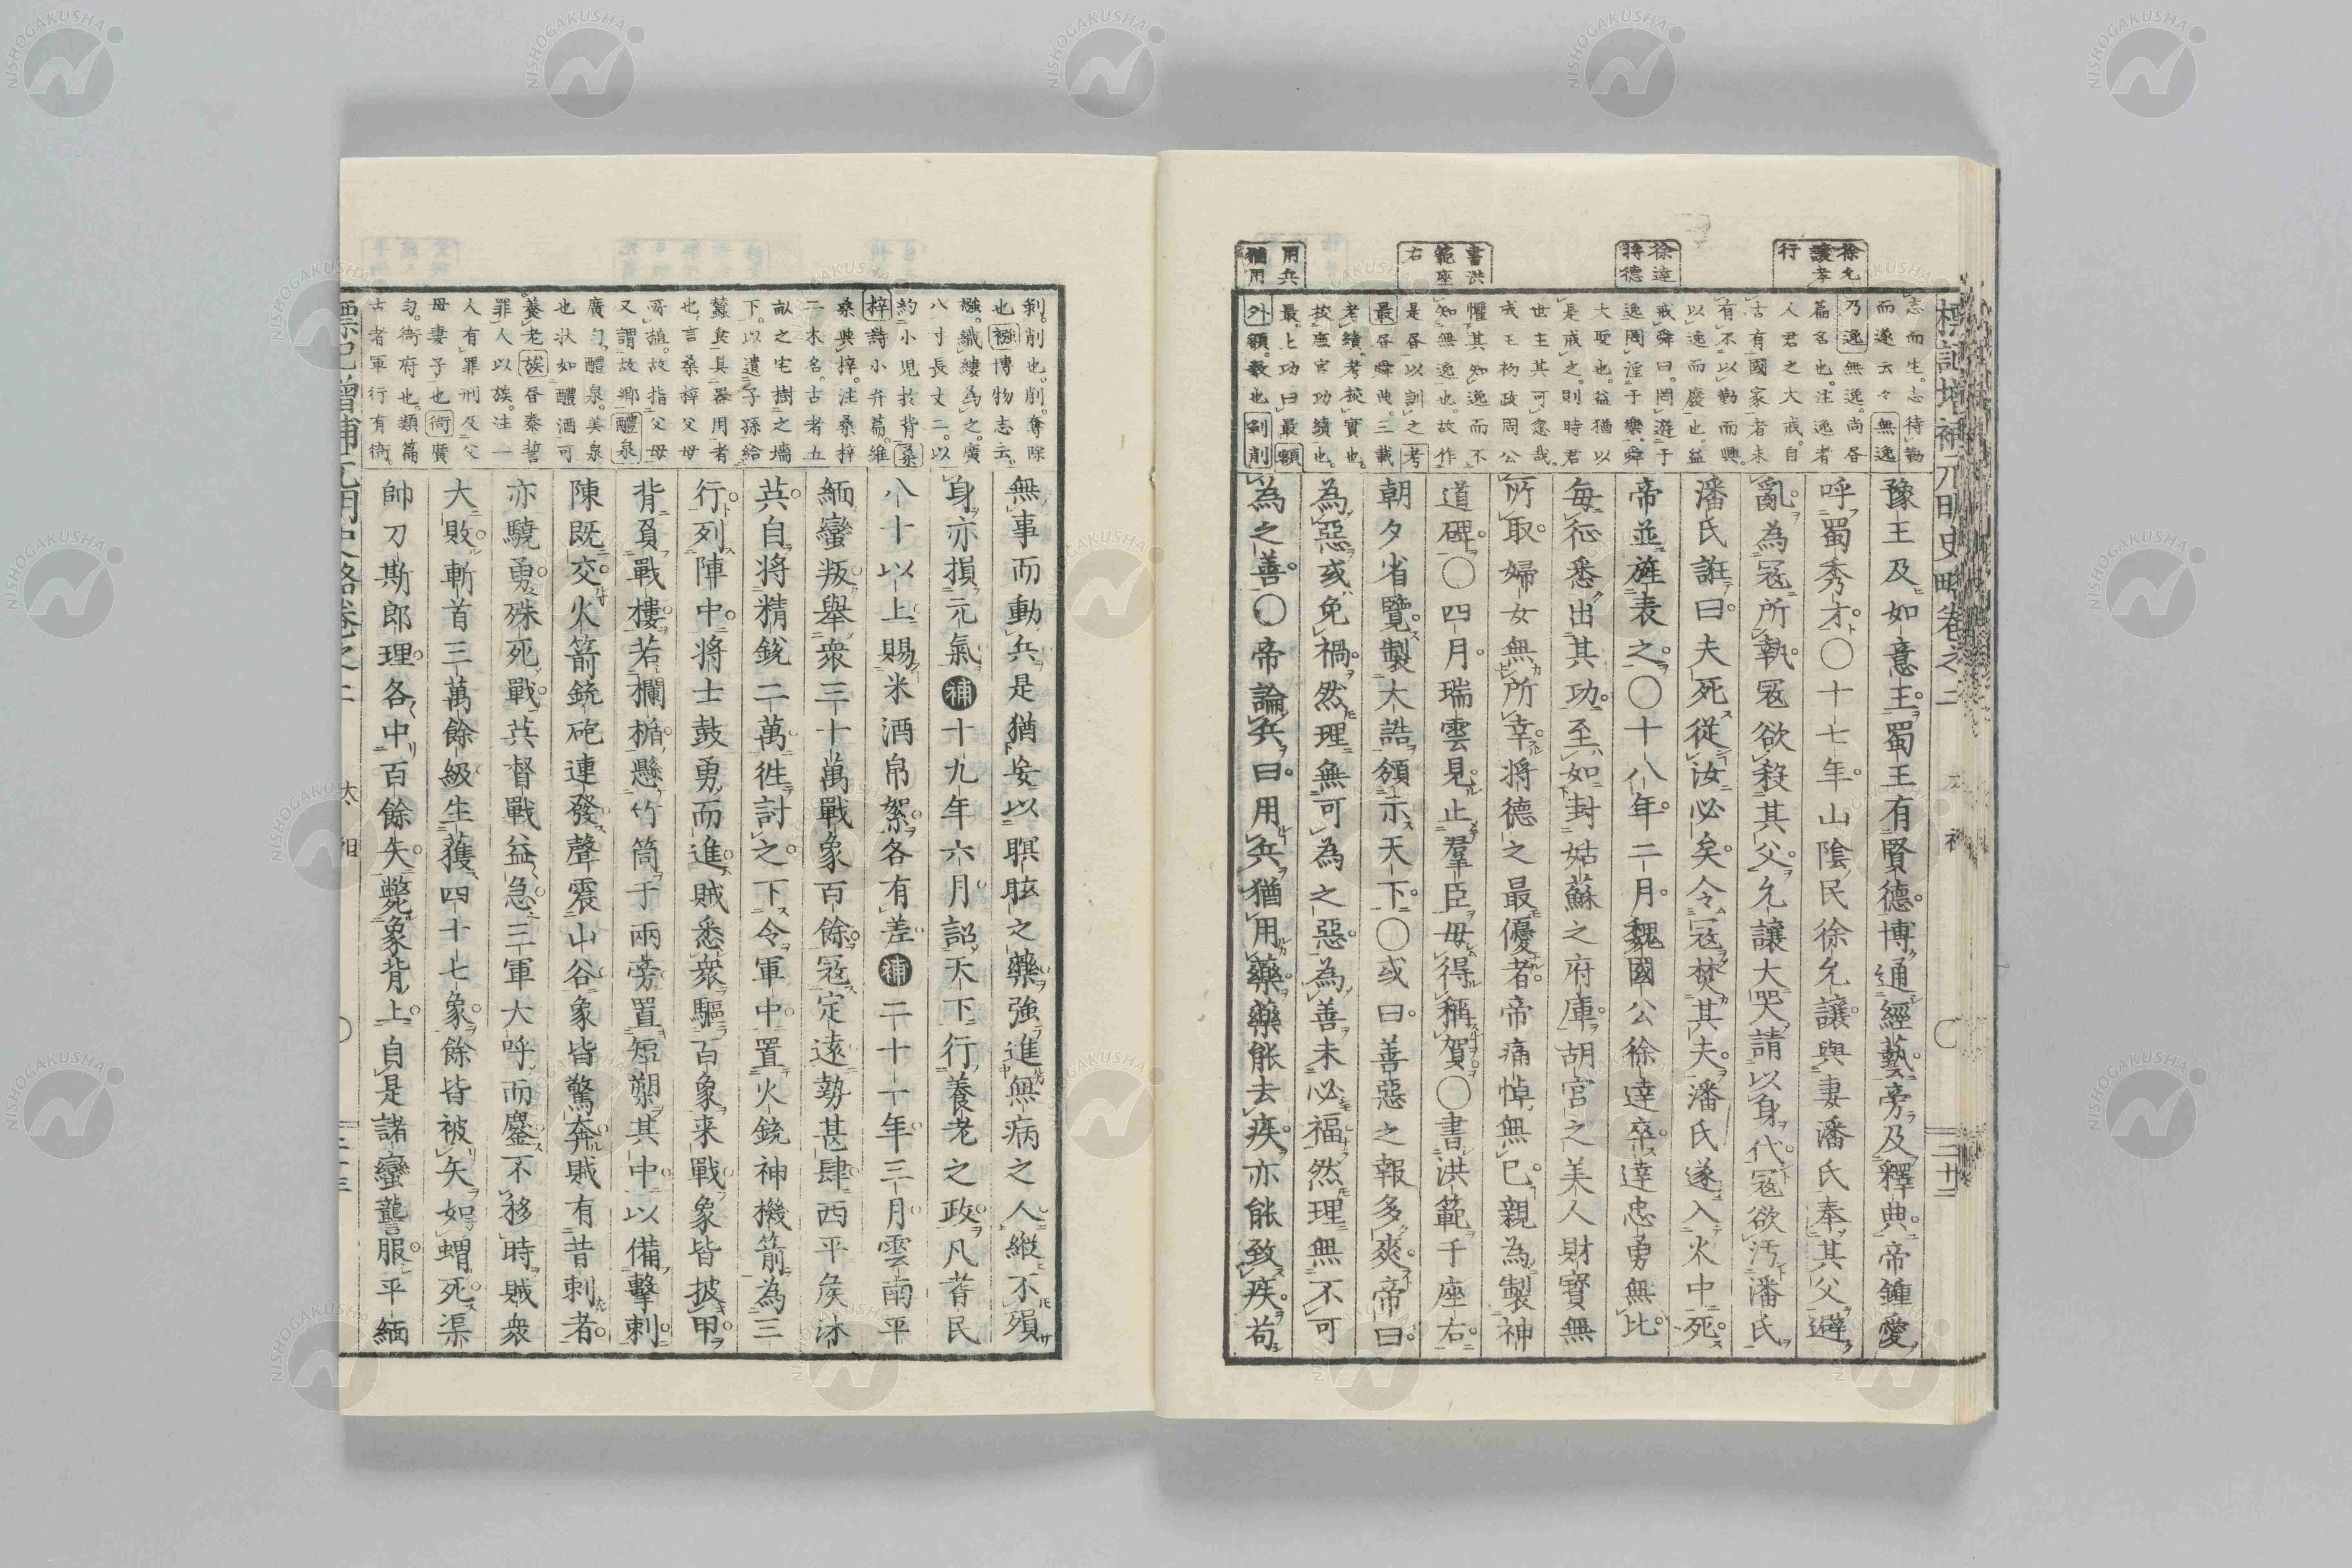 標記增補元明史略卷之二
徐允
讓孝
行
徐達
將德
書洪
範座
右
用兵
猶用
志而生。志待勤
而遂云々無逸
乃逸無逸。尚書
篇名也。注逸者
人君之大戒。自
古有國家者未
有不以勤而興。
以逸而廢也。益
戒舜曰。罔遊于
逸罔淫于樂。舜
大聖也。益猶以
是戒之。則時君
世主其可忽哉。
成王初政周公
懼其知逸而不
知無逸也。故作
是書以訓之考
最書舜典。三載
考績。考核實也。
核應官功績也。
最。上功曰最額
外額。數也剝削
豫王及如意王。蜀王有賢德。博通經藝。旁及釋典。帝鍾愛
呼蜀秀才。〇十七年。山陰民徐允讓與妻潘氏奉其父避
亂為冦所執。冦欲殺其父。允讓大哭請以身代。冦欲汚潘氏
潘氏誑曰。夫死從汝必矣。令冦焚其夫。潘氏遂入火中死。
帝並旌表之。〇十八年。二月。魏國公徐達卒。達忠勇無比。
毎征悉出其功。至如封姑蘇之府庫。胡宮之美人財寳無
所取。婦女無所幸。將德之最優者。帝痛悼無已。親為製神
道碑。〇四月。瑞雲見。止羣臣毋得稱賀。〇書洪範于座右。
朝夕省覽。製大誥頒示天下。〇或曰。善惡之報多爽。帝曰。
為惡或免禍。然理無可為之惡。為善未必福。然理無不可
為之善。〇帝論兵曰。用兵猶用藥。藥能去疾。亦能致疾。苟
太祖
剝。削也。削。奪除
也襁博物志云。
襁。織縷為之。廣
八寸長丈二。以
約小児於背桑
梓詩小弁篇。維
桑與梓。注桑梓
二木名。古者五
畝之宅樹之墻
下。以遺子孫給
蠶食具器用者
也。言桑梓父母
所植。故指父母
又謂故鄉醴泉
廣勻。醴泉。美泉
也狀如醴酒可
養老族書秦誓
罪人以族。注一
人有罪刑及父
母妻子也衙廣
勻。衙府也。類篇
古者軍行有衙。
無事而動兵是猶安以瞑眩之藥強進無病之人縱不殞
身亦損元氣補十九年六月詔天下行養老之政凡耆民
八十以上賜米酒帛絮各有差補二十一年三月雲南平
緬蠻叛舉衆三十萬戰象百餘冦定遠勢甚肆西平矦沐
英自將精銳二萬徃討之。下令軍中置火銃神機箭為三
行列陣中。將士鼓勇而進賊悉衆驅百象来戰象皆披甲
背負戰樓若欄楯懸竹筒于兩旁置短槊其中以備擊刺
陳既交火箭銃砲連發聲震山谷象皆驚奔賊有昔刺者。
亦驍勇殊死戰英督戰益急三軍大呼而鏖不移時賊衆
大敗斬首三萬餘級生獲四十七象餘皆被矢如蝟死渠
帥刀斯郎理各中百餘矢斃象背上自是諸蠻讋服平緬